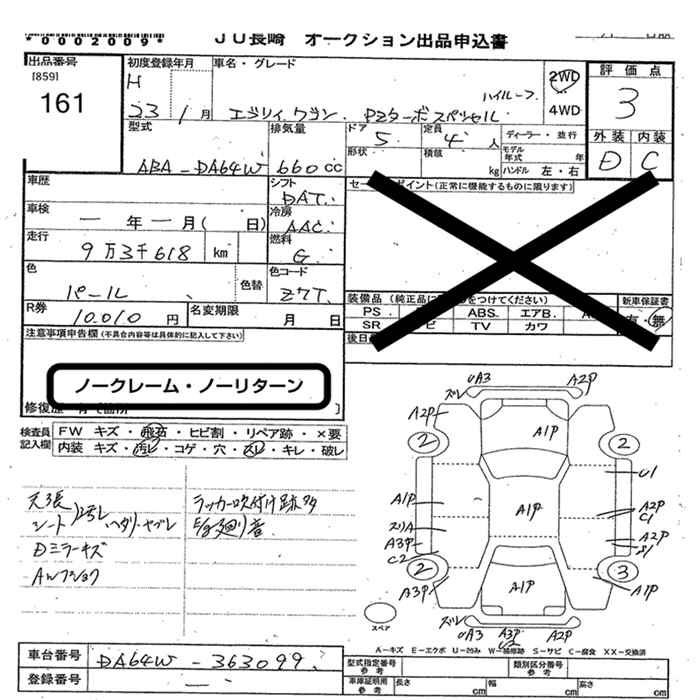 *0002009*
JU長崎 オークション出品申込書
出品番号
[859]
161
初度登録年月
H
23 1月
車名・グレード
エブリィワゴン PZターボスペシャル
ハイルーフ
2WD
4WD
評価点
3
外装 内装
D C
型式
ABA-DA64W
排気量
660cc
ドア
5
形状
定員
4 人
積載
kg
ディーラー・並行
モデル年式 年
ハンドル 左・右
車歴
シフト
DAT
車検
一年一月( 日)
冷房
AAC
走行
9万3千618 km
燃料
G
色
パール
色替
色コード
Z7T
R券
10.010 円
名変期限
月 日
セー ポイント(正常に機能するものに限ります)
装備品(純正品に をつけてください)
新車保証書
有・無
PS ABS. エアB. A
SR ビ TV カワ
後日
注意事項申告欄(不具合内容等は具体的に記入して下さい)
ノークレーム・ノーリターン
検査員記入欄
FW キズ・飛石・ヒビ割・リペア跡・×要
内装 キズ・汚レ・コゲ・穴・スレ・キレ・破レ
天張
シート 汚レ ヘタリ・ヤブレ
Dミラーキズ
AWフショク
ラッカー吹付け跡多
廻り音
ズレ UA3 A2P
A2P A1P
2 2
U1
A1P A1P A2P
C1
スリA
A3P A2P
C2 S1
2 3
A3P A1P A1P
スペア
ズレ UA3 A3P A2P
A-キズ E-エクボ U-凹み W-補修跡 S-サビ C-腐食 XX-交換済
車台番号
DA64W-363099
登録番号
一
型式指定番号 参考
類別区分番号 参考
車庫証明用 参考
長さ cm
幅 cm
高さ cm